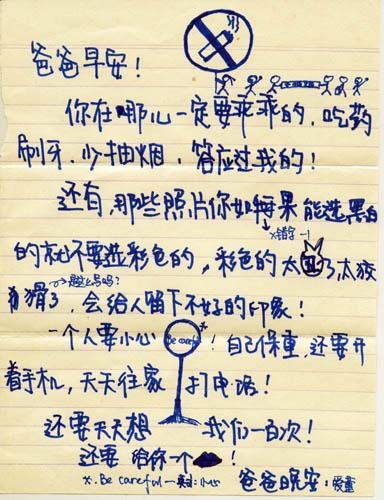 爸爸早安!
你在哪儿一定要乖乖的,吃药
刷牙,少抽烟,答应过我的!
还有,那些照片你如果能选黑白
*错字一
的就不要选彩色的,彩色的太丑了,太狡
猾了,会给人留下不好的印象!
一个人要小心 Be careful* !自己保重,还要开
着手机,天天往家打电话!
还要天天想我们一百次!
还要给你一个 !
*. Be careful 一
爸爸晚安: